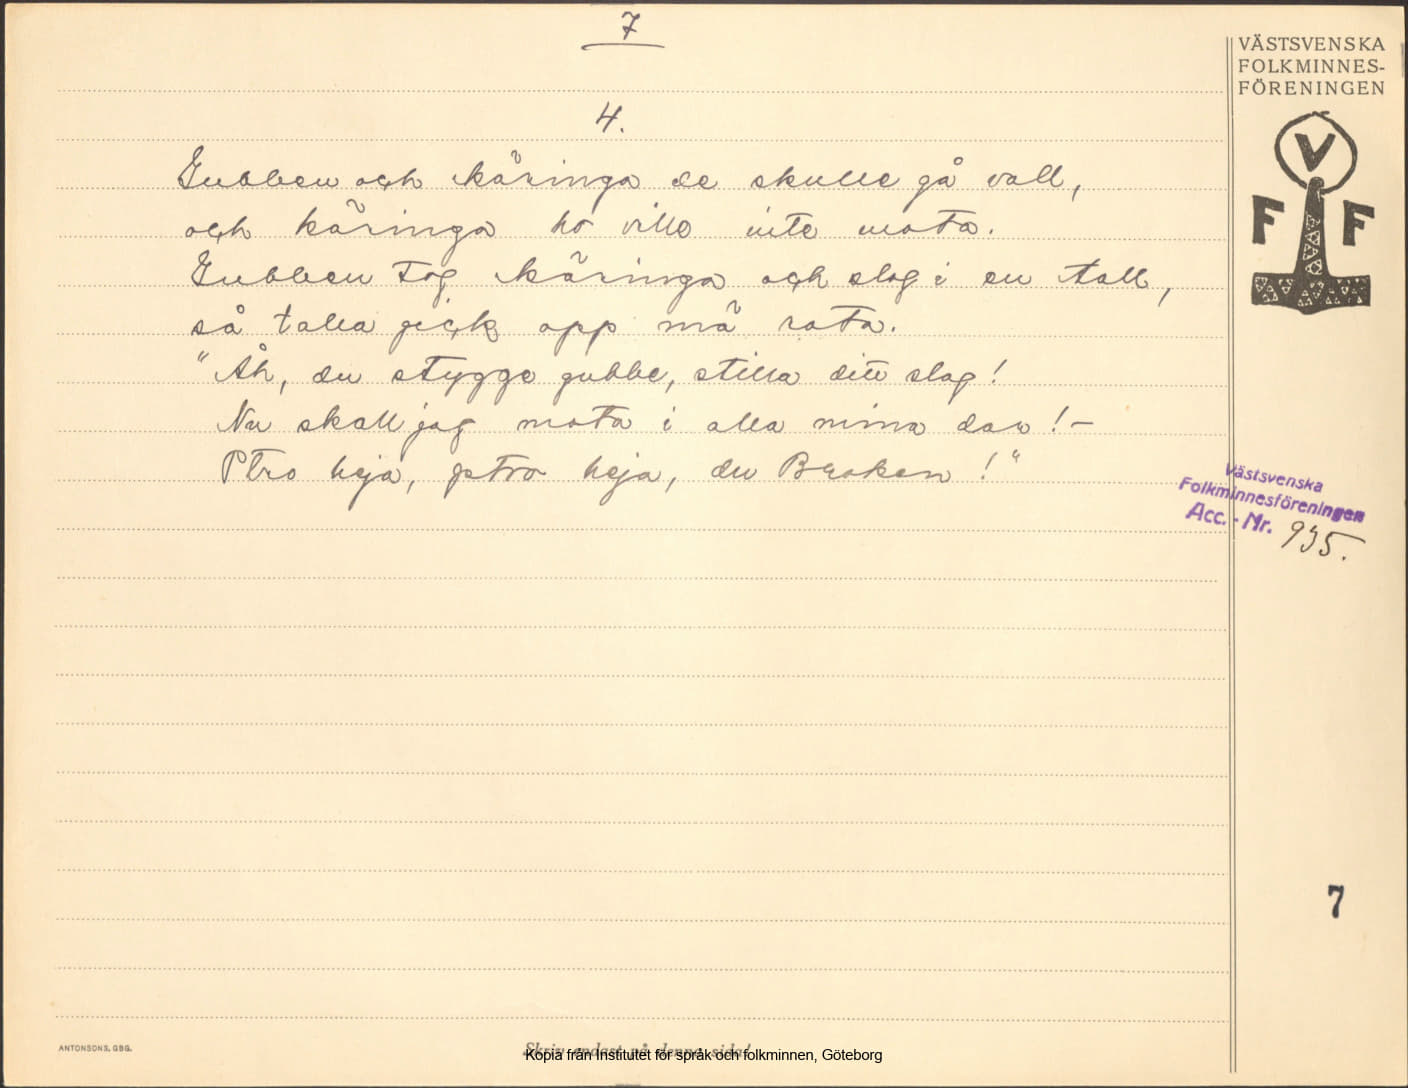 7
VÄSTSVENSKA
FOLKMINNES-
FÖRENINGEN
V
F F
4.
Gubben och käringa de skulle gå vall,
och käringa ho ville inte mota.
Gubben tog käringa och slog i en tall,
så talla gick opp mä rota.
"Åh, du stygge gubbe, stilla ditt slag!
Nu skall jag mota i alla mina dar! –
Ptro heja, ptro heja, du Broken!"
Västsvenska
Folkminnesföreningen
Acc. - Nr. 935.
7
ANTONSONS, GBG.
Skriv endast på denna sida!
Kopia från Institutet för språk och folkminnen, Göteborg